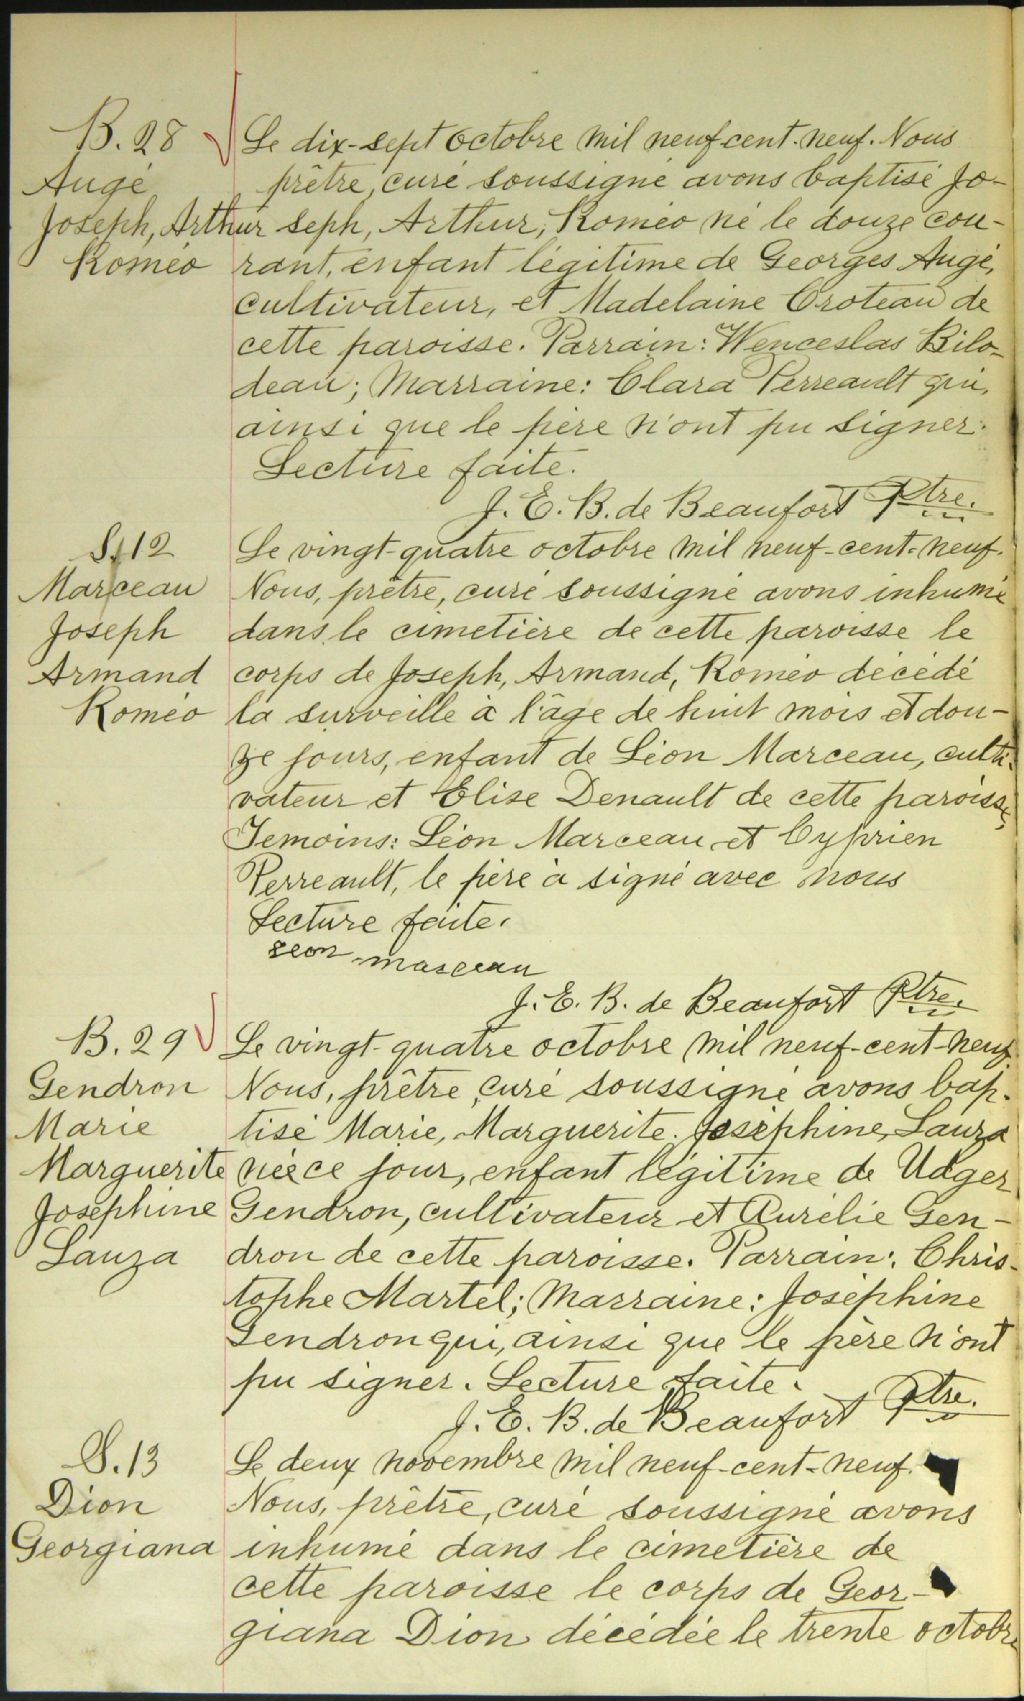 B. 28
Augé
Joseph, Arthur
Roméo
Le dix-sept octobre mil neuf-cent-neuf. Nous
prêtre, curé soussigné avons baptisé Jo-
seph, Arthur, Roméo né le douze cou-
rant, enfant légitime de Georges Augé,
cultivateur, et Madelaine Croteau de
cette paroisse. Parrain: Wenceslas Bilo-
deau; Marraine: Clara Perreault qui,
ainsi que le père n'ont pu signer.
Lecture faite.
J. E. B. de Beaufort Ptre.
S. 12
Marceau
Joseph
Armand
Roméo
Le vingt-quatre octobre mil neuf-cent-neuf.
Nous, prêtre, curé soussigné avons inhumé
dans le cimetière de cette paroisse le
corps de Joseph, Armand, Roméo décédé
la surveille à l'âge de huit mois et dou-
ze jours, enfant de Léon Marceau, culti-
vateur et Elise Denault de cette paroisse,
Temoins: Léon Marceau et Cyprien
Perreault, le père à signé avec nous
Lecture faite.
leon marceau
J. E. B. de Beaufort Ptre.
B. 29
Gendron
Marie
Marguerite
Joséphine
Lauza
Le vingt-quatre octobre mil neuf-cent-neuf
Nous, prêtre, curé soussigné avons bap-
tisé Marie, Marguerite. Joséphine, Lauza
née ce jour, enfant légitime de Udger
Gendron, cultivateur et Aurélie Gen-
dron de cette paroisse. Parrain: Chris-
tophe Martel; Marraine: Joséphine
Gendron qui, ainsi que le père n'ont
pu signer. Lecture faite.
J. E. B. de Beaufort Ptre.
S. 13
Dion
Georgiana
Le deux novembre mil neuf-cent-neuf.
Nous, prêtre, curé soussigné avons
inhumé dans le cimetière de
cette paroisse le corps de Geor-
giana Dion décédée le trente octobre